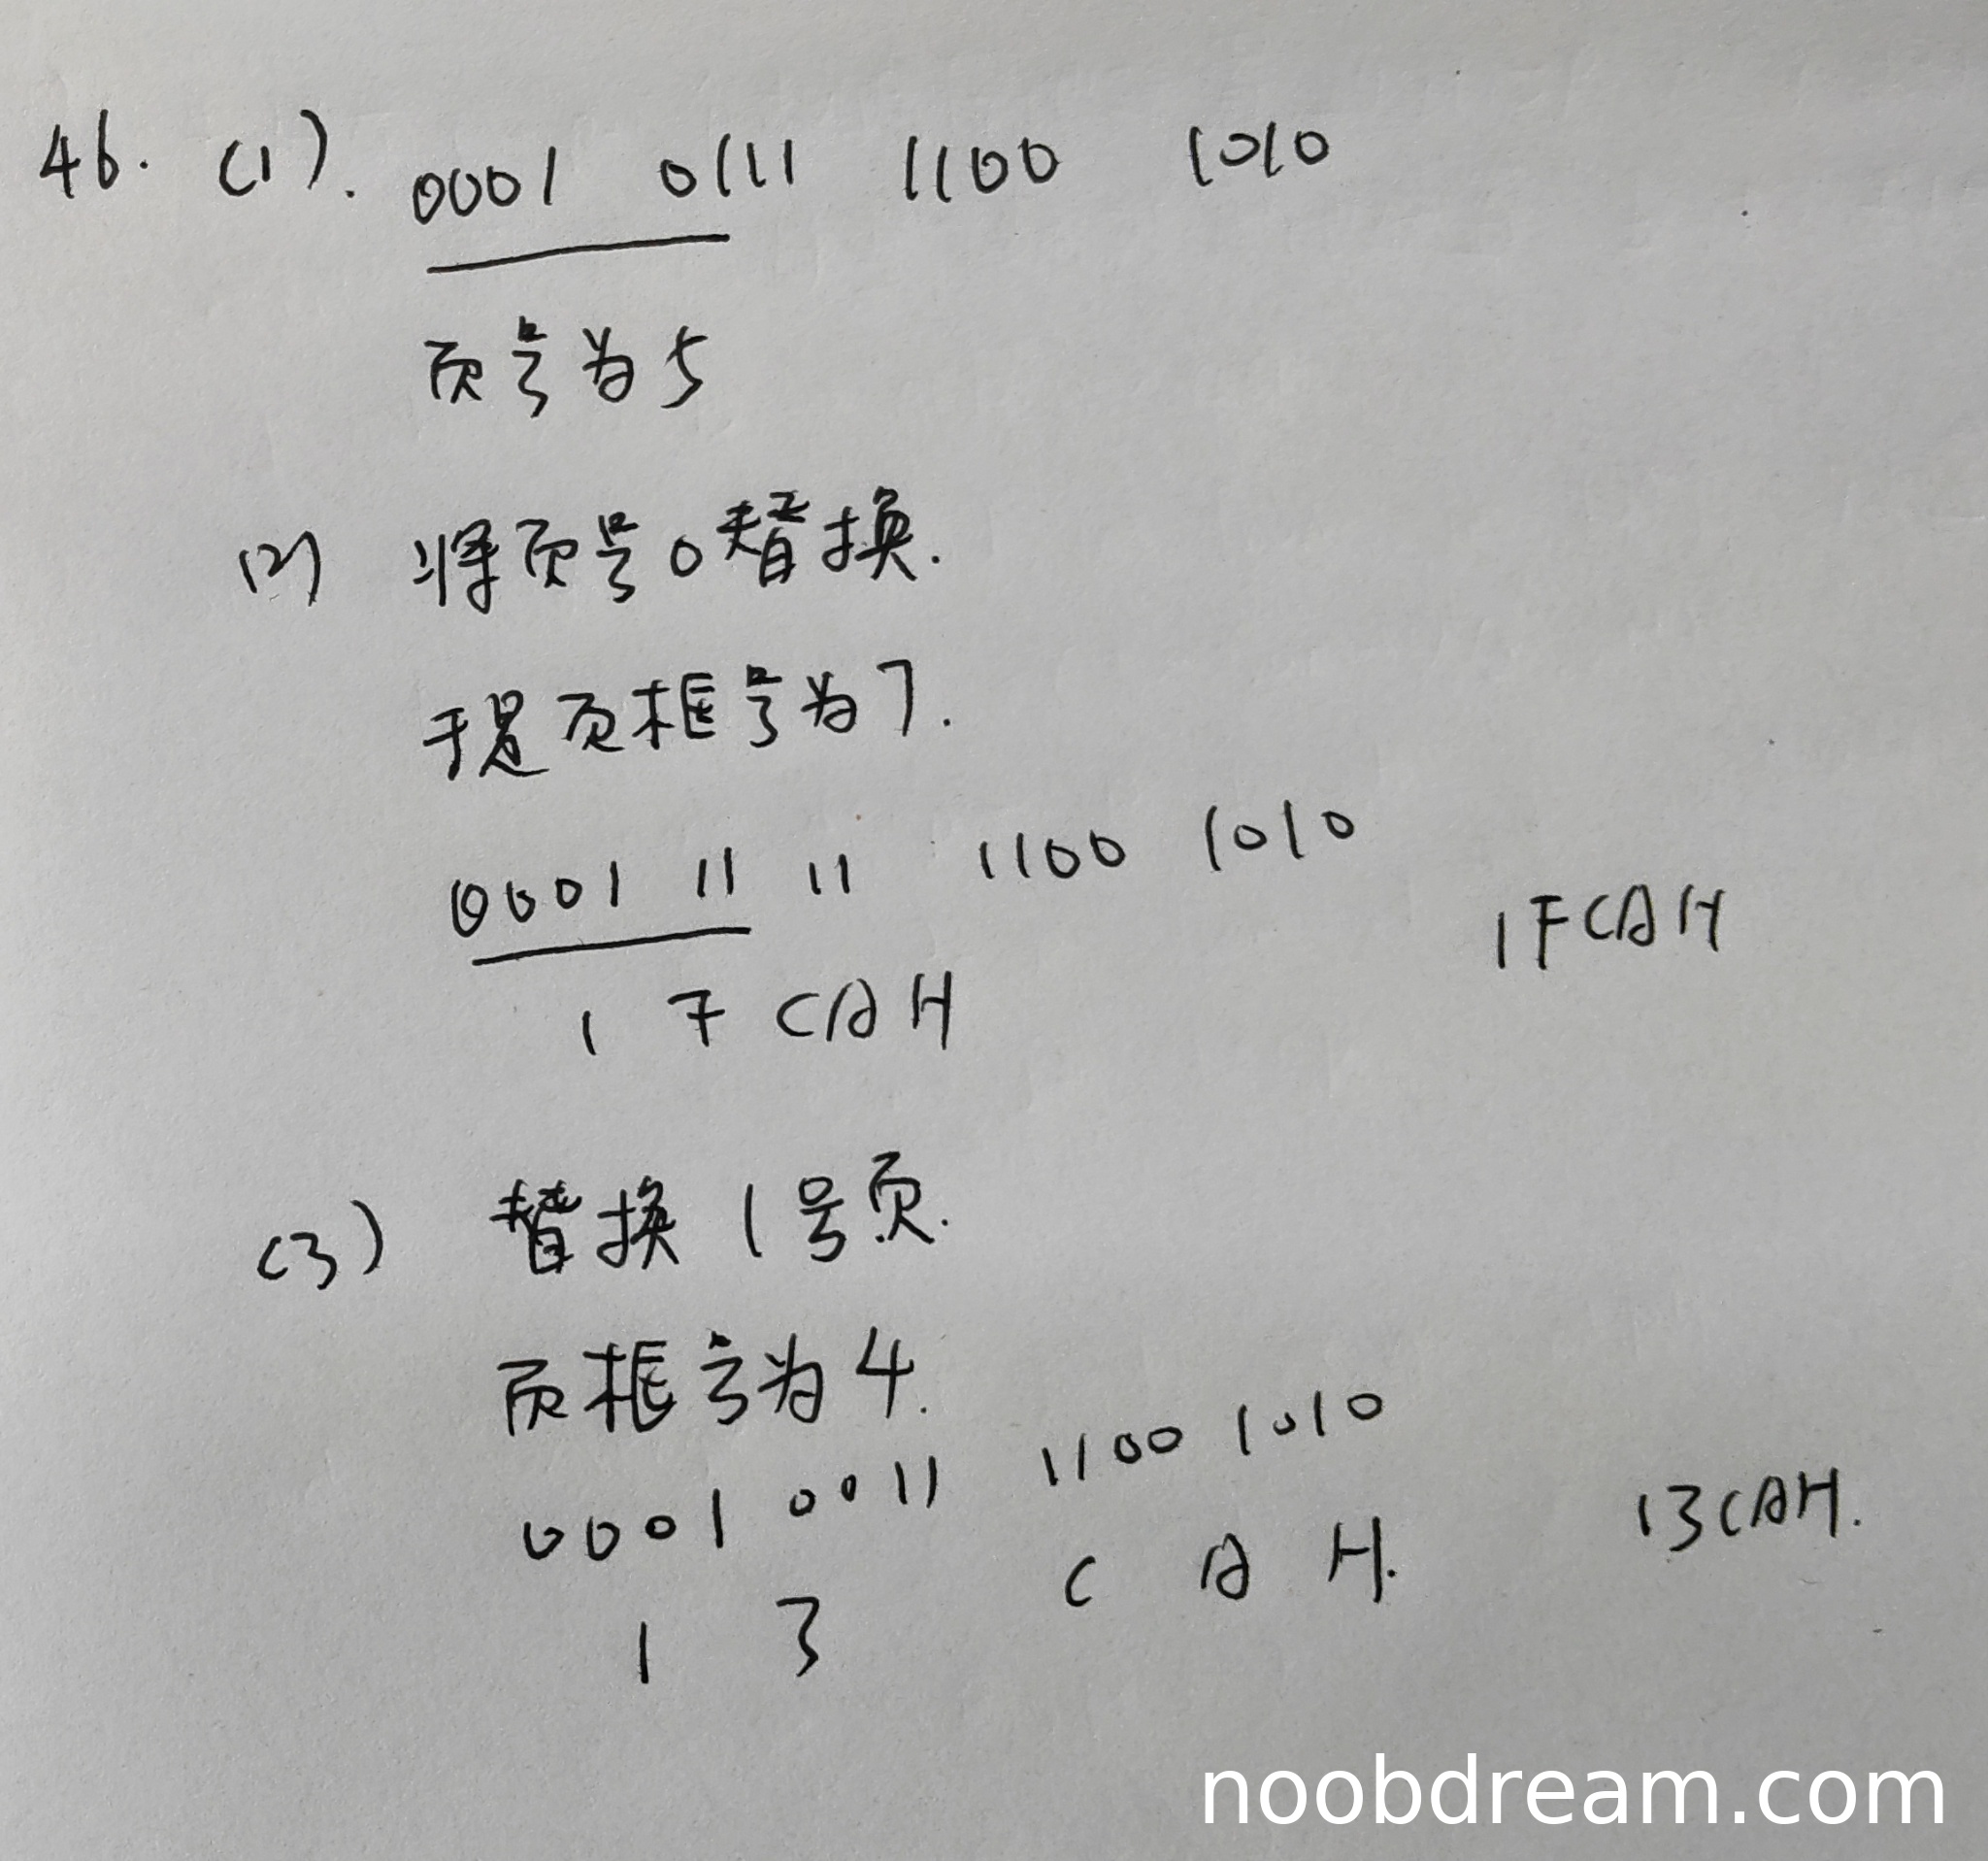 46. (1). 0001 0111 1100 1010
页号为5
(2) 将页号0替换.
于是页框号为7.
0001 11 11 1100 1010
1 F CAH 1FCAH
(3) 替换1号页.
页框号为4.
0001 0011 1100 1010
1 3 C A H. 13CAH.
noobdream.com